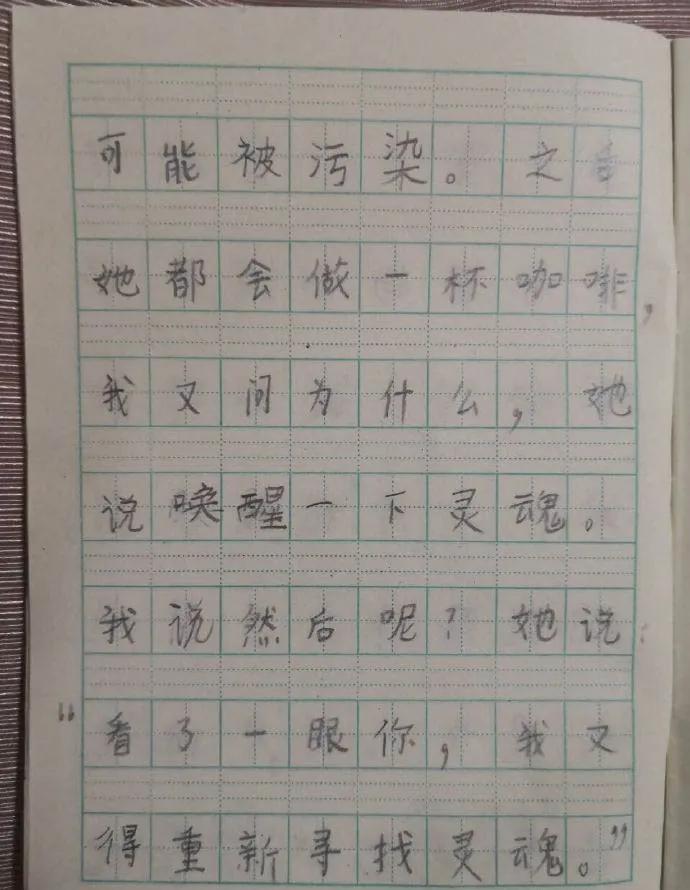 可能被污染。之后
她都会做一杯咖啡,
我又问为什么,她
说唤醒一下灵魂。
我说然后呢?她说:
“看了一眼你,我又
得重新寻找灵魂。”